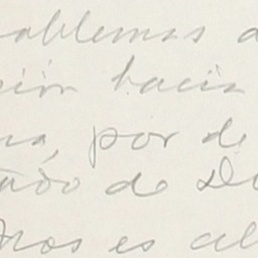 oblemas d
sión hacia
na, por de
tado de Di
mos es al